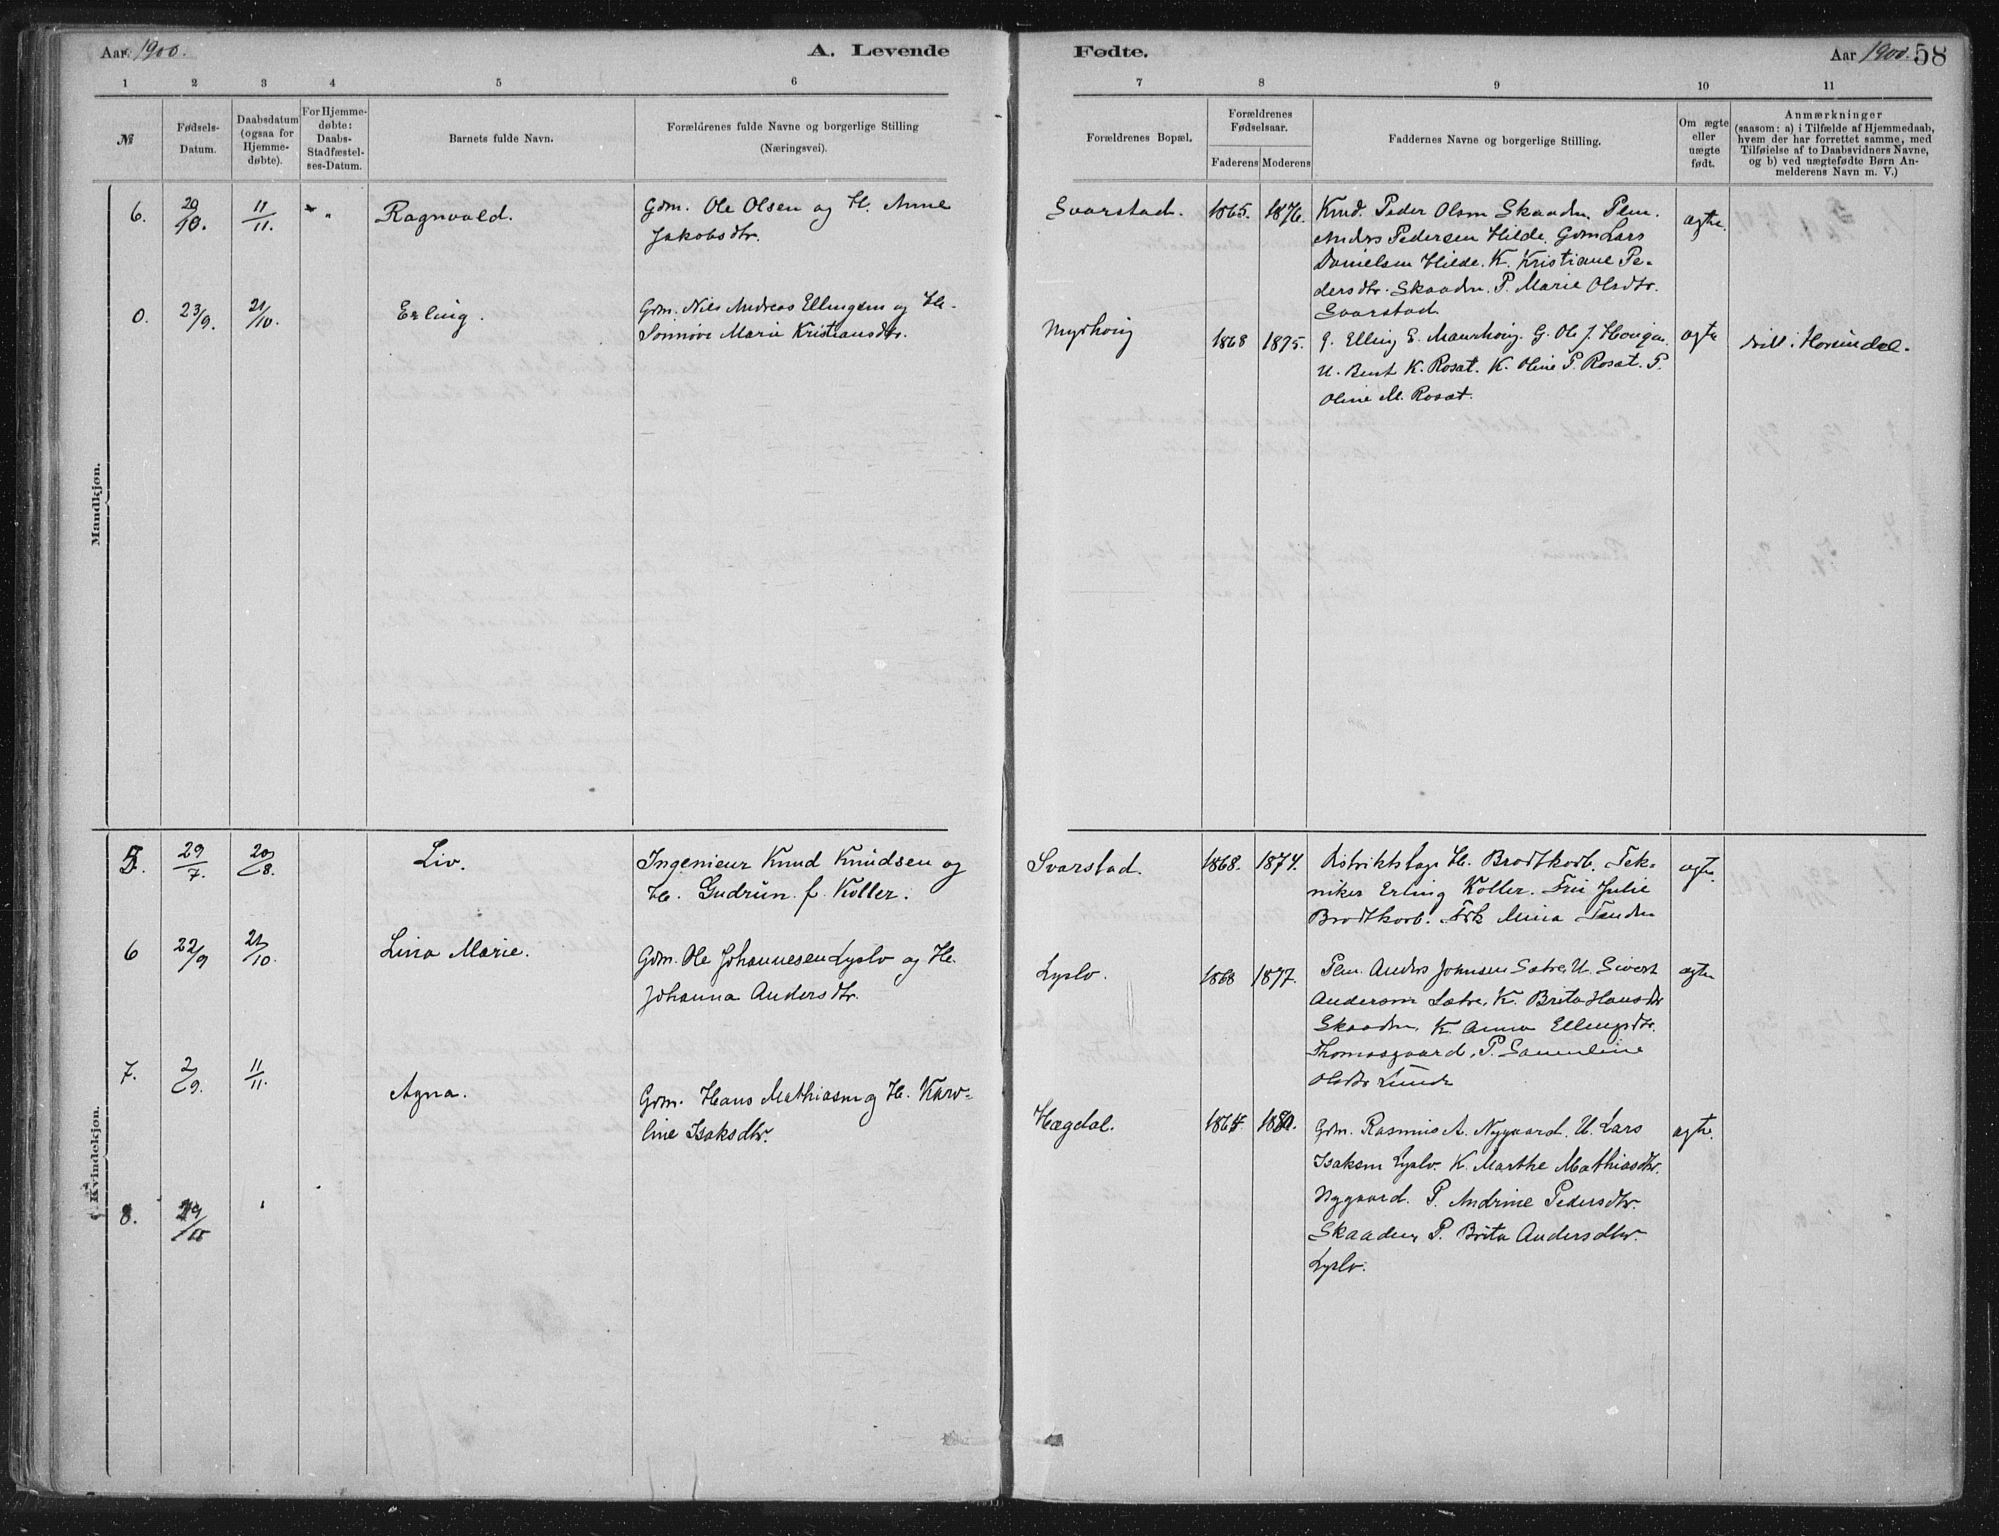 Aar 1900.
A. Levende
Fødte.
Aar 1900.
58
1 2 3 4 5 6 7 8 9 10 11
№
Fødsels-
Datum.
Daabsdatum
(ogsaa for
Hjemme-
døbte).
For Hjemme-
døbte:
Daabs-
Stadfæstel-
ses-Datum.
Barnets fulde Navn.
Forældrenes fulde Navne og borgerlige Stilling
(Næringsvei).
Forældrenes Bopæl.
Forældrenes
Fødselsaar.
Faderens Moderens
Faddernes Navne og borgerlige Stilling.
Om ægte
eller
uægte
født.
Anmærkninger
(saasom: a) i Tilfælde af Hjemmedaab,
hvem der har forrettet samme, med
Tilføielse af to Daabsvidners Navne,
og b) ved uægtefødte Børn An-
melderens Navn m. V.)
Mandkjøn.
6. 20/10. 11/11. Ragnvald.
Gdm. Ole Olsen og H. Anne
Jakobsdtr.
Svarstad. 1865. 1876.
Knud Peder Olsen Skaaden. Plm.
Anders Pedersen Hilde. Gdm Lars
Danielsen Hilde. K. Kristiane Pe-
dersdtr. Skaaden. P. Marie Olsdtr.
Svarstad.
ægte.
0. 23/9. 21/10. Erling.
Gdm. Nils Andreas Ellingsen og H.
Sønnøve Marie Kristiansdtr.
Myrhoug 1868 1875.
G. Elling E. Maurhoug. G. Ole J. Hougen.
U. Bent K. Rosæt. K. Oline P. Rosæt. P.
Oline M. Rosæt.
ægte
i Hornindal.
Kvindekjøn.
5. 29/7. 20/8. Liv.
Ingenieur Knud Knudsen og
H. Gudrun f. Koller.
Svarstad. 1868. 1874.
H. Brodtkorb. Tek-
niker Erling Koller. Fru Julie
Brodtkorb. Frk Mina
ægte.
6 22/9 21/10 Lina Marie.
Gdm. Ole Johannesen Lyslo og H.
Johanna Andersdtr.
Lyslo. 1868 1877.
Plm. Anders Johnsen Sætre, U. Sivert
Andersen Sætre, K. Brita Hansdtr
Skaaden, K. Anna Ellingsdtr.
Thomasgaard, P. Samueline
Olsdtr Lunde
ægte
7. 2/9. 11/11. Agna.
Gdm. Hans Mathiasen og H. Karo-
line Isaksdtr.
Hægdal.
Gdm. Rasmus A. Nygaard. U. Lars
Isaksen Lyslo. K. Marthe Mathiasdtr.
Nygaard. P. Andrine Pedersdtr.
Skaaden, P. Brita Andersdtr.
Lyslo.
ægte.
8.